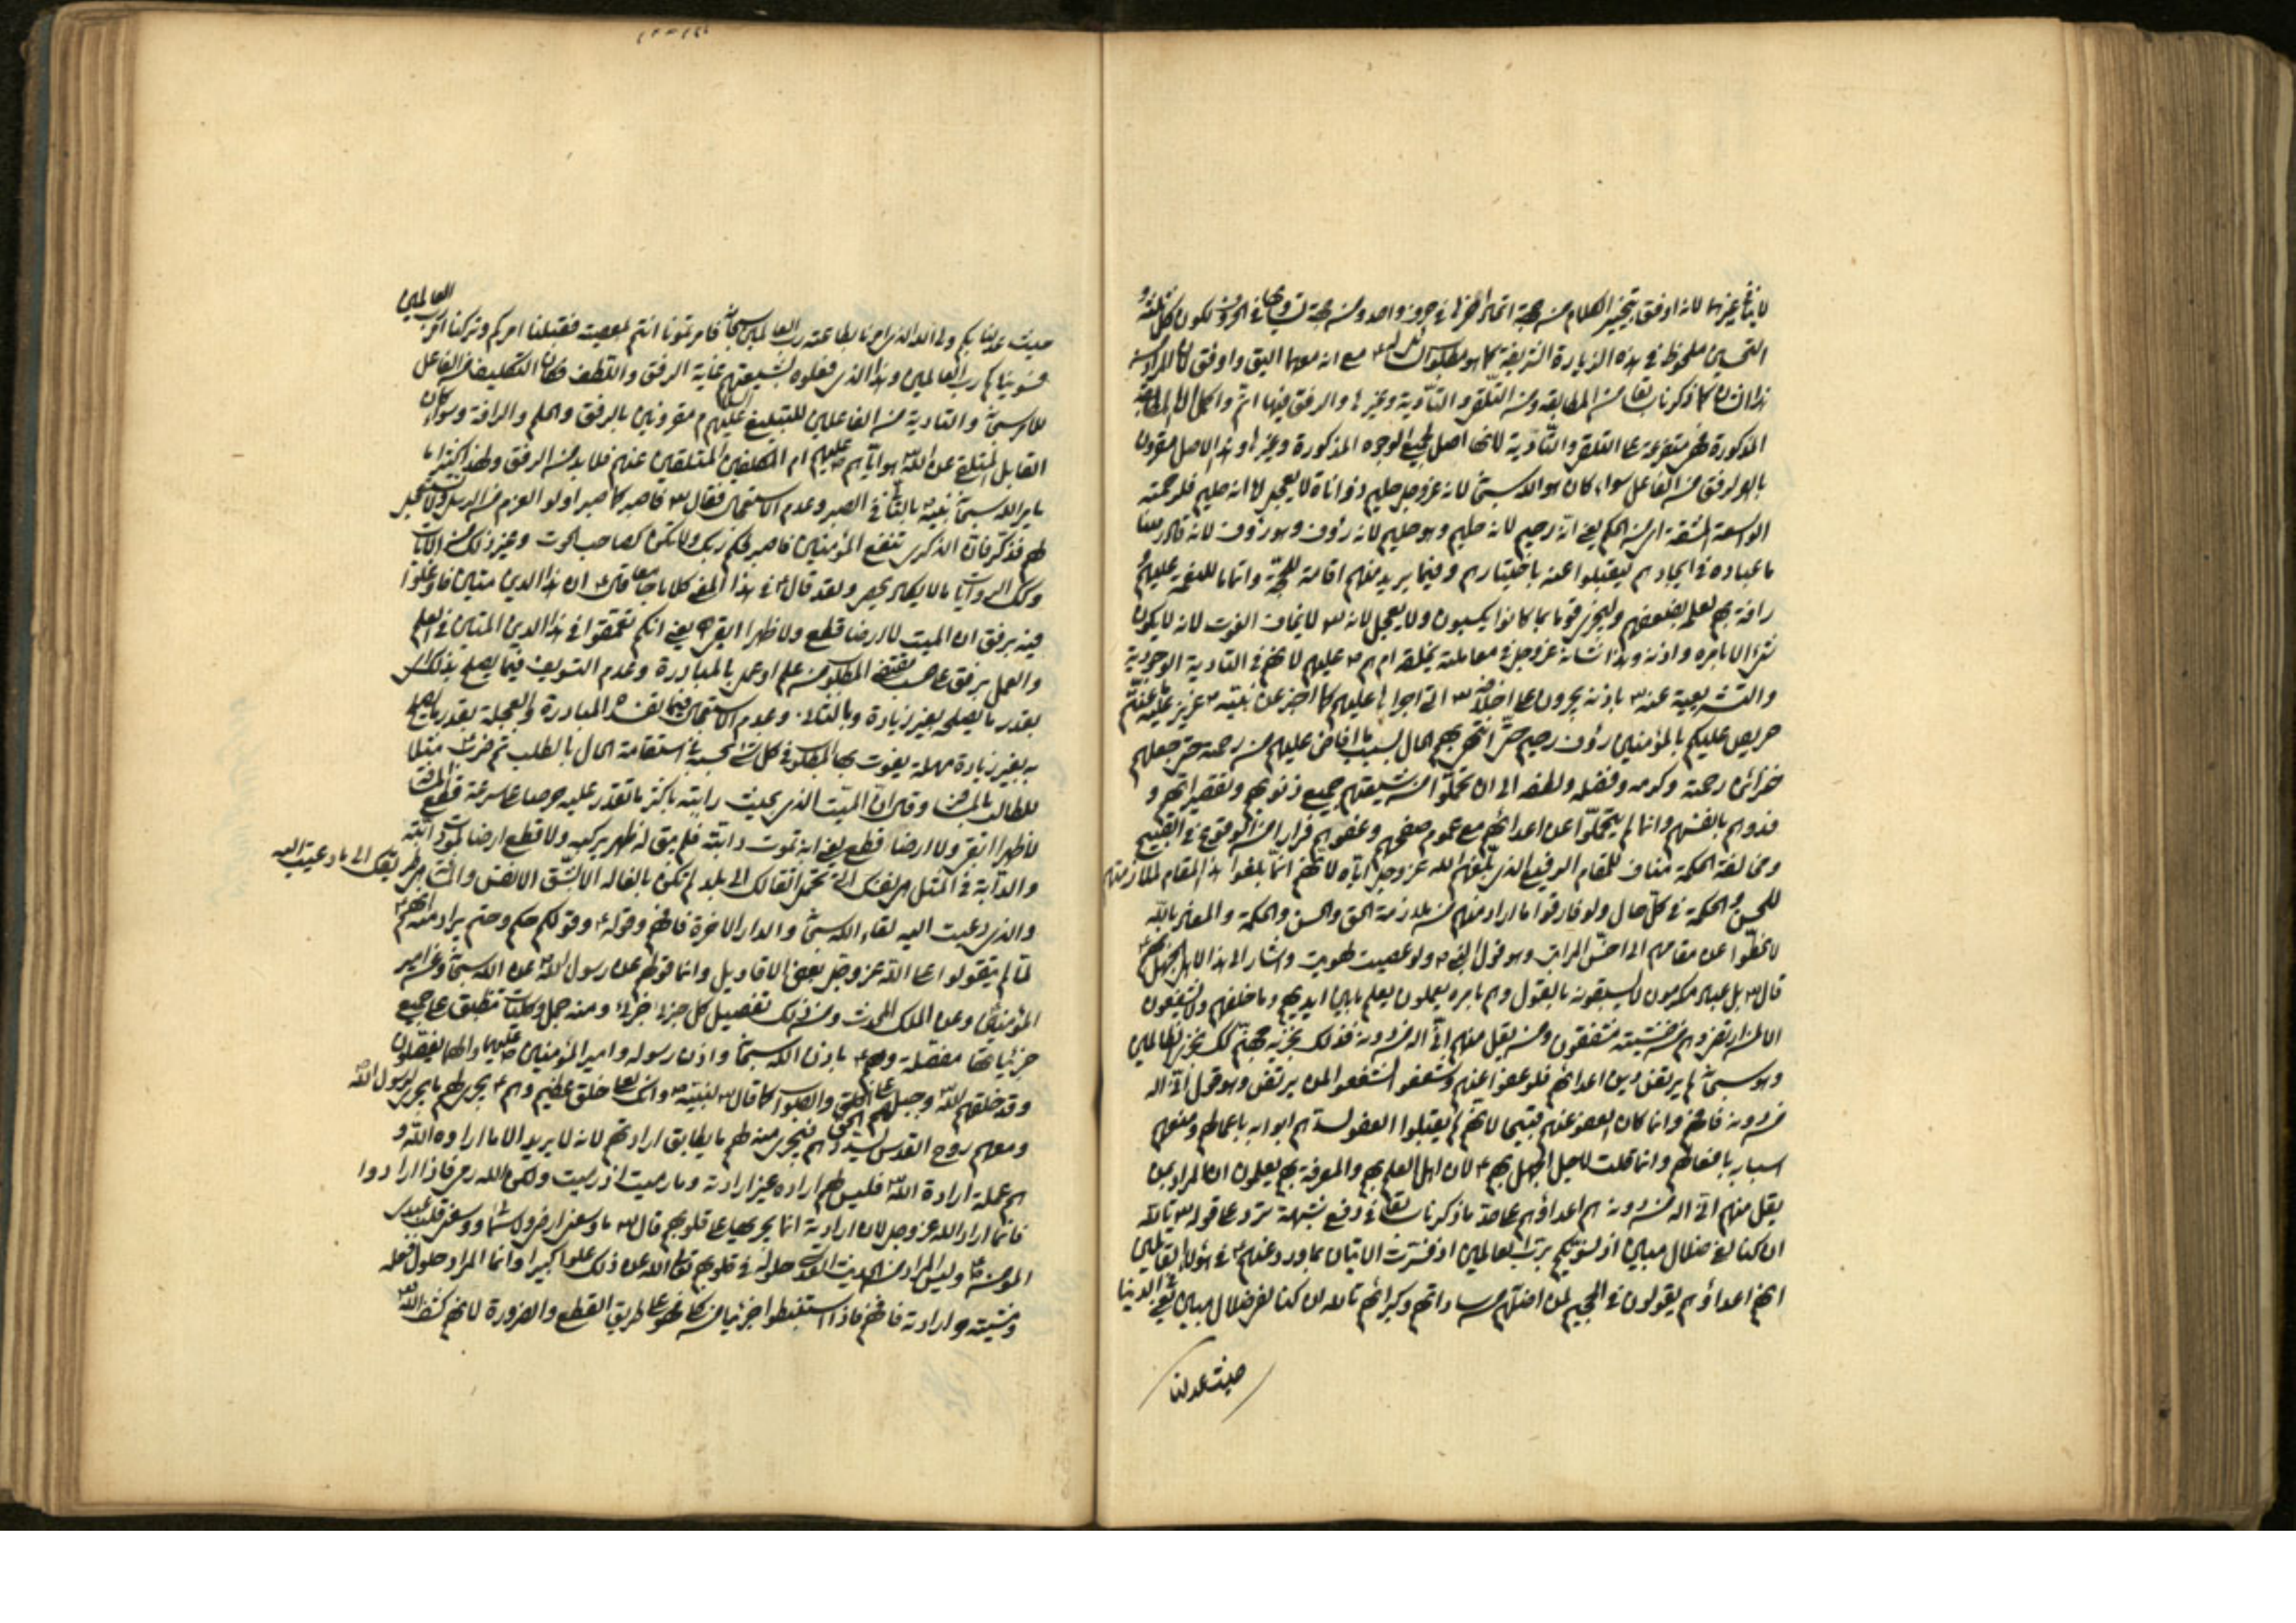 التحسين ملحوظ في هذه الزيارة الشريفة كما هو مطلوب مع انه معهما اليق واوفق لان المراد منه
كما ذكرنا سابقا من المطابقة ومن التلقي والتأدية وغيرها والرفق فيهما اتم واكمل لان المطابقة
المذكورة متفرعة على التلقي والتأدية لانها اصل لجميع الوجوه المذكورة وغيرها وهذا الاصل مقرون
بالرفق من الفاعل سواء كان هو الله سبحانه لانه عز وجل حليم ذو اناة لا يعجل لانه حليم فلرحمته
الواسعة المشتقة اي من الحكم يعني انه رحيم لانه حليم وهو حليم لانه رؤوف وهو رؤوف لانه قادر
عباده في ايجادهم ليقبلوا عنه باختيارهم وفيما يريد منهم اقامة للحجة واتماما للنعمة عليهم
رافة بهم لعلمه بضعفهم وليجزي قوما بما كانوا يكسبون ولا يعجل لانه لا يخاف الفوت لانه لا يكون
شيء الا بامره واذنه وهذا شانه عز وجل في معاملته بخلقه عليهم لانهم في التادية الوجودية
والتشريعية عنه باذنه يجرون على اخلاقه التي اجراها عليهم كما اخبر عن نبيه عزيز عليه ما عنتم
حريص عليكم بالمؤمنين رؤف رحيم حتى انتهى بهم الحال بسبب ما افاض عليهم من رحمته حتى جعلهم
خزائن رحمته وكرمه وفضله ولطفه الى ان تحملوا من شيعتهم جميع ذنوبهم وتقصيراتهم و
فدوهم بانفسهم وانما لم يتحملوا عن اعدائهم مع عموم صفحهم وعفوهم فرارا من الوقوع في القبيح
ومخالفة الحكمة مناف للمقام الرفيع الذي بلغهم الله عز وجل اياه لانهم انما بلغوا هذا المقام لملازمتهم
للحسن والحكمة في كل حال ولو فارقوا ما اراد منهم من ملازمة الحق والحسن والحكمة والمعاذ بالله
لانحطوا عن مقامهم الى اخس المراتب وهو قول النبي ولو عصيت لهويت واشار الى هذا
قال بل عباد مكرمون لا يسبقونه بالقول وهم بامره يعملون يعلم ما بين ايديهم وما خلفهم ولا يشفعون
الا لمن ارتضى وهم من خشيته مشفقون ومن يقل منهم اني اله من دونه فذلك نجزيه جهنم كذلك نجزي الظالمين
وهو سبحانه لم يرتض دين اعدائهم فلو عفوا عنهم وشفعوا لشفعوا لمن لم يرتض وهو قول اني اله
من دونه فافهم وانما كان العفو عنهم قبيحا لانهم لم يقبلوا العفو لسدهم ابوابه باعمالهم ومنعهم
اسبابه بافعالهم وانما قلت لاجل الجهل بهم لان اهل العلم بهم والمعرفة بهم يعلمون ان المراد بمن
يقل منهم اني اله من دونه هم اعداؤهم على حد ما ذكرنا سابقا في دفع شبهة ترد على قوله تالله
ان كنا لفي ضلال مبين اذ نسويكم برب العالمين اذ فسرت الايتان بما ورد عنهم في هؤلاء القائلين
انهم اعداؤهم يقولون في الجحيم لمن اضلهم من ساداتهم وكبرائهم تالله ان كنا لفي ضلال مبين يعني في الدنيا
حيث عدلنا
حيث عدلنا بكم ولي الله الذي امرنا بطاعته رب العالمين سبحانه فامرتمونا انتم بمعصيته فقبلنا امركم وتركنا امر رب العالمين
فسويناكم برب العالمين وهذا الذي فعلوه لشيعتهم غاية الرفق واللطف فكان التكليف من الفاعل
الله سبحانه والتادية من الفاعلين للتبليغ عليهم السلام مقرونين بالرفق والحلم والرافة وسواء كان
القابل المتلقي عن الله هو اياهم عليهم ام المكلفين المتلقين عنهم فلا بد من الرفق ولهذا كثيرا ما
يامر الله سبحانه نبيه بالتأني في الصبر وعدم الاستعجال فقال فاصبر كما صبر اولوا العزم من الرسل ولا تستعجل
لهم فذكر فان الذكرى تنفع المؤمنين فاصبر لحكم ربك ولا تكن كصاحب الحوت وغير ذلك من الايات
وكذا الروايات ما لا يكاد يحصر ولقد قال في هذا المعنى كلاما جامعا ان هذا الدين متين فاوغلوا
فيه برفق ان المنبت لا ارضا قطع ولا ظهرا ابقى يعني انكم تعمقوا في هذا الدين المتين في العلم
والعمل برفق على حسب مقتضى المطلوب من علم او عمل بالمبادرة وعدم التسويف فيما يصلح بذلك
بقدر ما يصلحه بغير زيادة وبالتأني وعدم الاستعجال فيما تفسده المبادرة والعجلة بقدر ما يصلح
به بغير زيادة مهلة يفوت بها المطلوب في كل شيء بحسبه في استقامة الحال بالطلب ثم ضرب مثلا
لا ظهرا ابقى ولا ارضا قطع يعني انه تموت دابته فلم يبق له ظهر يركبه ولا قطع ارضا لموت دابته
والدابة في المثل هي نفسك التي تحمل اثقالك الى بلد لم تكن بالغاه الا بشق الانفس والمسافة هي طريقك الى ما دعيت اليه
والذي دعيت اليه لقاء الله سبحانه والدار الاخرة فافهم وقوله وقولكم حكم وحتم يراد منه انهم
لما لم يتقولوا على الله عز وجل بعض الاقاويل وانما قولهم عن رسول الله عن الله سبحانه وعن امير
المؤمنين وعن الملك المحدث ومن ذلك تفصيل كل جزئي جزئي ومنه جمل وكليات تنطبق على جميع
جزئياتها مفصلة وهم باذن الله سبحانه واذن رسوله وامير المؤمنين عليهما والهما يفصلون
وقد خلقهم الله وجبلهم على الحق والصواب كما قال لنبيه وانك لعلى خلق عظيم وهم يجري لهم ما يجري لرسول الله
ومعهم روح القدس يسددهم فيجري منه لهم ما يطابق ارادتهم لانه لا يريد الا ما ارادوه الله و
ارادة الله فليس لهم ارادة غير ارادته وما رميت اذ رميت ولكن الله رمى فاذا ارادوا
فانما اراد الله عز وجل لان ارادته انما يجريها على قلوبهم قال ما وسعني ارضي ولا سمائي ووسعني قلب عبدي
المؤمن وليس المراد من الحديث القدسي حلوله في قلوبهم تعالى الله عن ذلك علوا كبيرا وانما المراد حلول فعله
ومشيته وارادته فافهم فاذا استنبطوا جزئيا من كلي فهو على طريق القطع والضرورة لانهم كشف الله